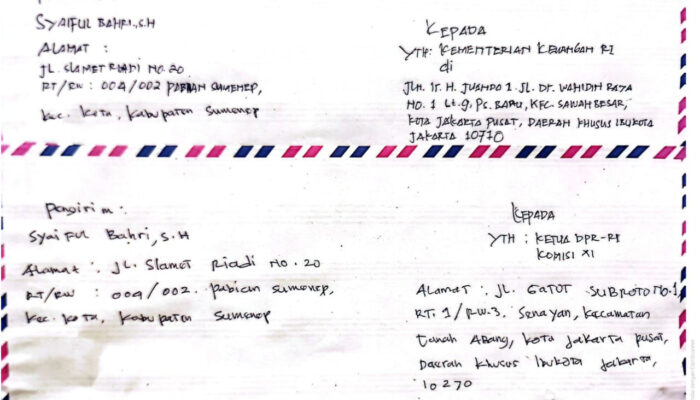 SYAIFUL BAHRI, S.H
ALAMAT :
JL. SLAMET RIADI NO. 20
RT/RW : 004/002 PABIAN SUMENEP,
Kec. Kota, Kabupaten Sumenep
KEPADA
YTH: KEMENTERIAN KEUANGAN RI
di
JLN. Ir. H. JUANDA 1. JL. Dr. WAHIDIN RAYA
NO. 1 Lt.9, Ps. BARU, KEC. SAWAH BESAR,
KOTA JAKARTA PUSAT, DAERAH KHUSUS IBUKOTA
JAKARTA 10710
Pengirim :
Syaiful Bahri, S.H
Alamat : JL. Slamet Riadi NO. 20
RT/RW : 004/002. Pabian Sumenep,
Kec. Kota, Kabupaten Sumenep
KEPADA
YTH : KETUA DPR-RI
KOMISI XI
Alamat : JL. GATOT SUBROTO NO.1,
RT. 1/RW.3. Senayan, Kecamatan
Tanah Abang, Kota Jakarta Pusat,
Daerah Khusus Ibukota Jakarta,
10270